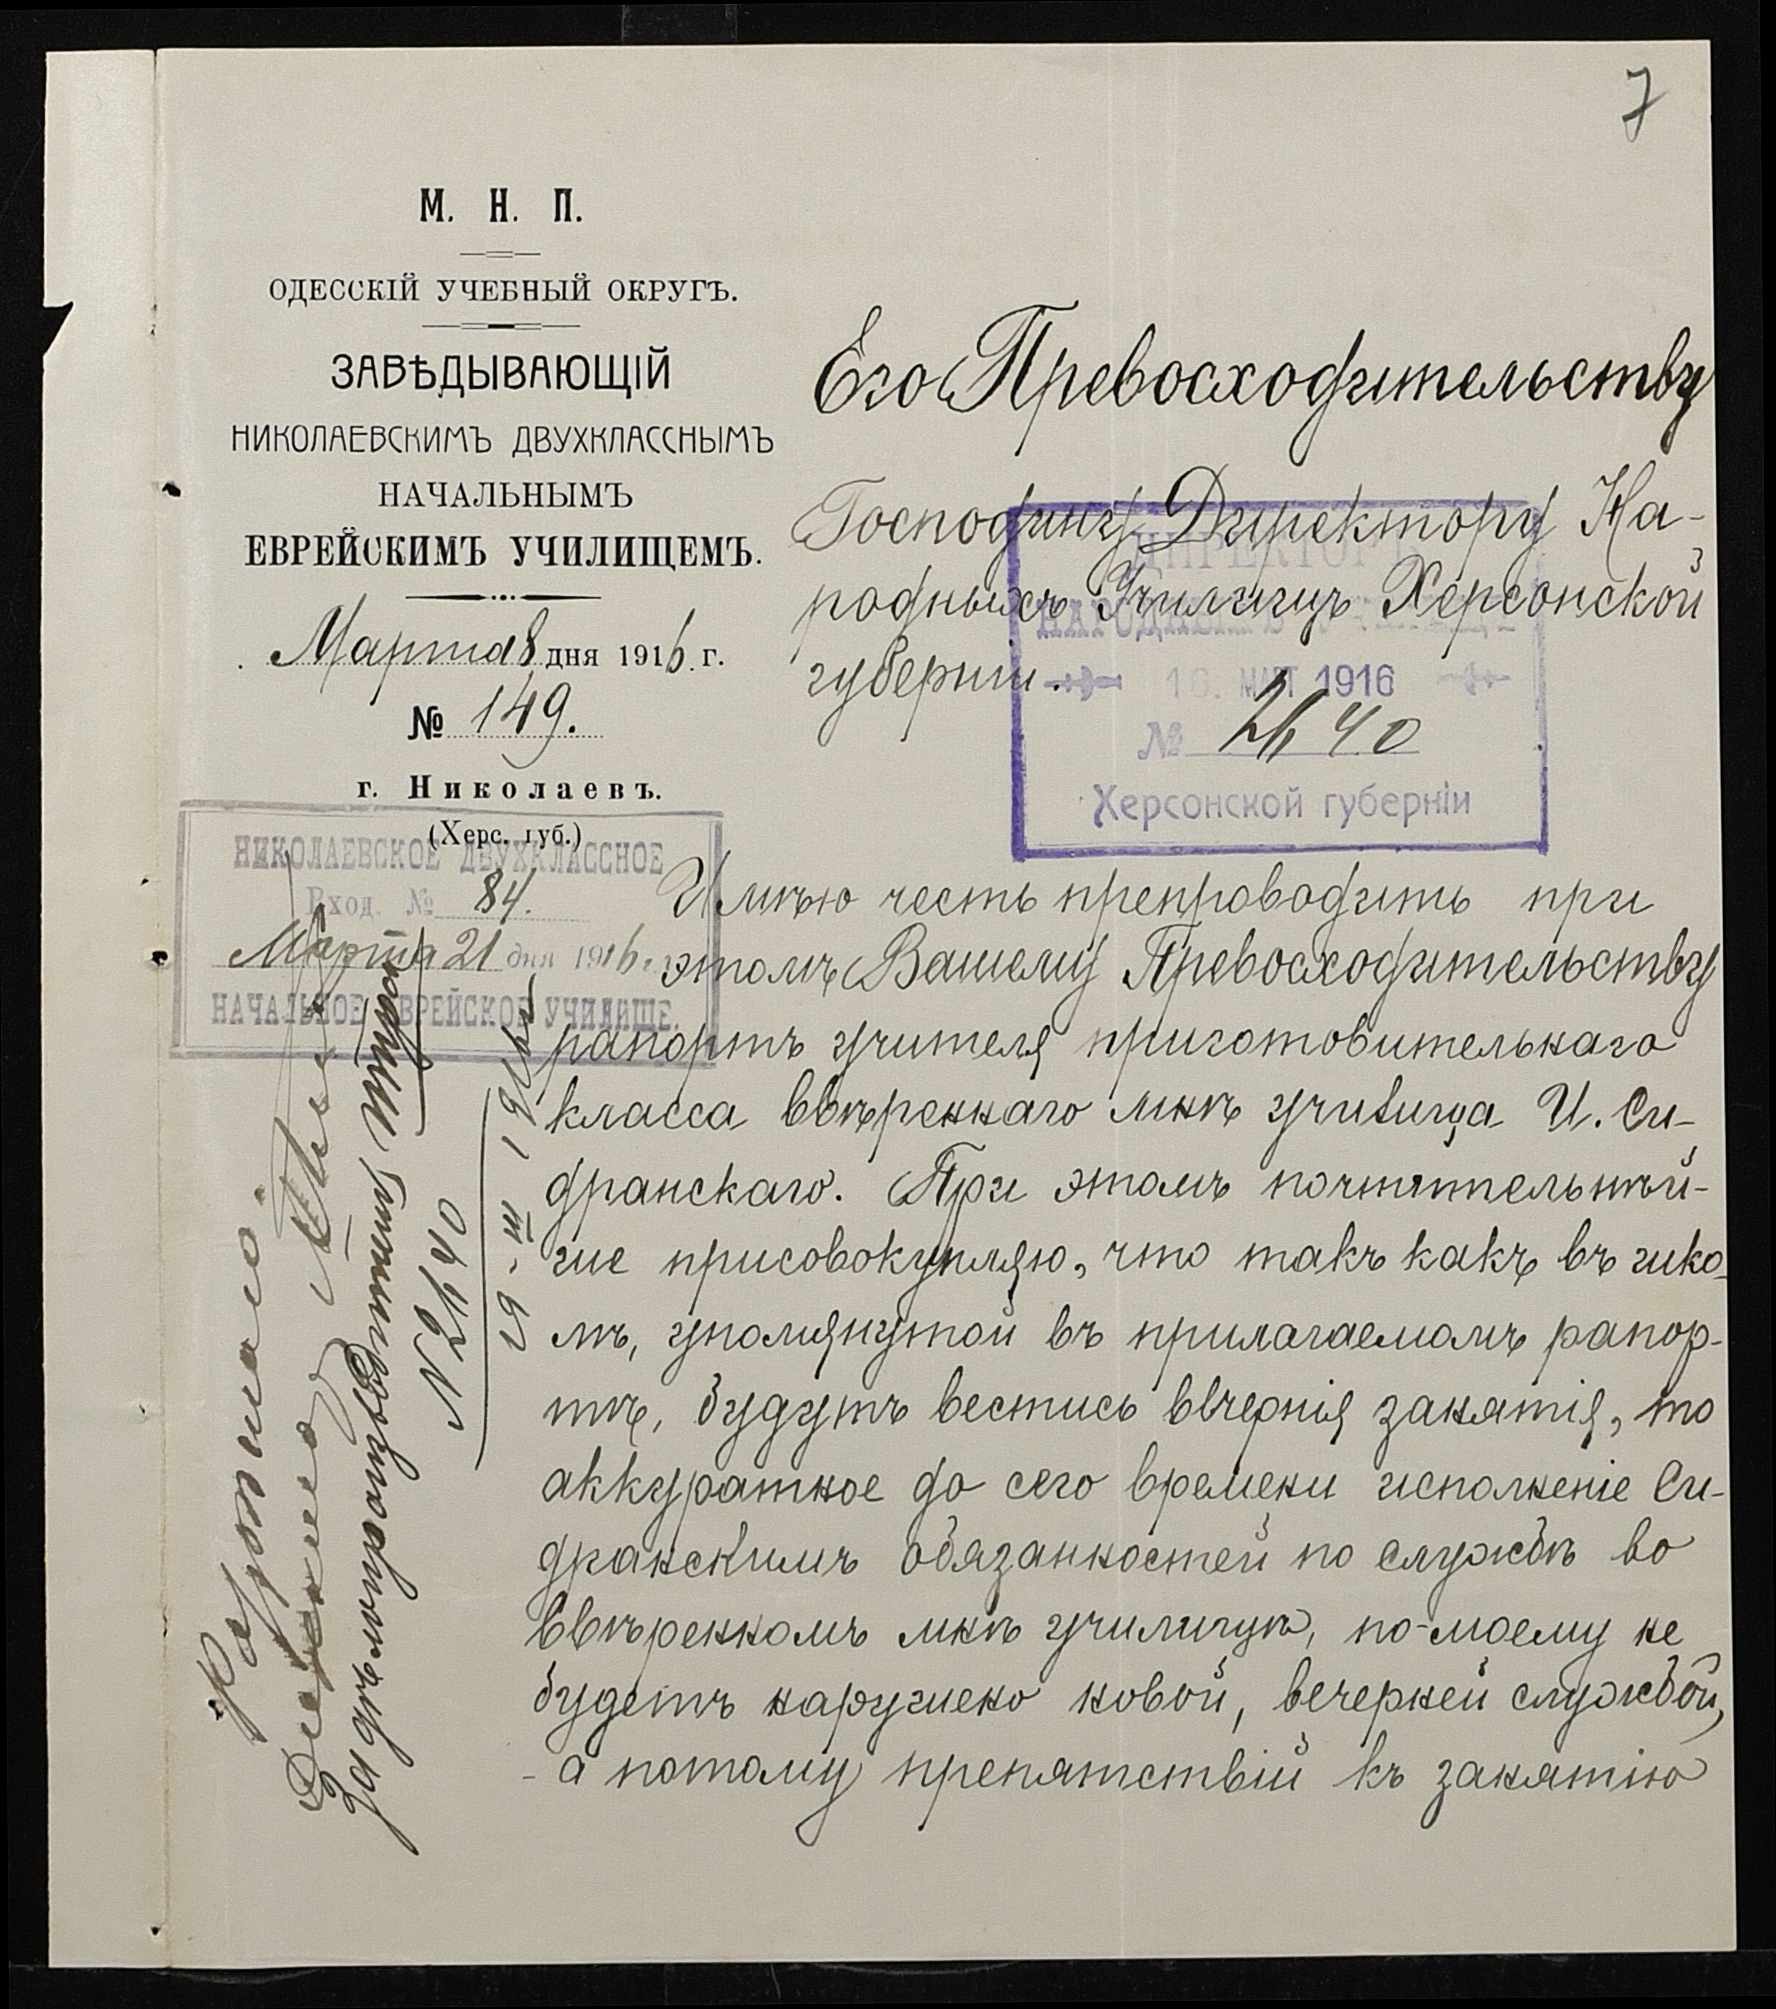 7
М. Н. П.
ОДЕССКІЙ УЧЕБНЫЙ ОКРУГЪ.
ЗАВѢДЫВАЮЩІЙ
НИКОЛАЕВСКИМЪ ДВУХКЛАССНЫМЪ
НАЧАЛЬНЫМЪ
ЕВРЕЙСКИМЪ УЧИЛИЩЕМЪ.
Марта 8 дня 1916 г.
№ 149.
г. Николаевъ.
(Херс. губ.)
НИКОЛАЕВСКОЕ ДВУХКЛАССНОЕ
Вход. № 84.
Марта 21 дня 1916 г.
НАЧАЛЬНОЕ ЕВРЕЙСКОЕ УЧИЛИЩЕ.
Его Превосходительству
Господину Директору На-
родныхъ Училищъ Херсонской
губерніи.
ДИРЕКТОРЪ
НАРОДНЫХЪ УЧИЛИЩЪ
16. МАТ 1916
№ 2640
Херсонской губерніи
Имѣю честь препроводить при
этомъ Вашему Превосходительству
рапортъ учителя приготовительнаго
класса ввѣреннаго мнѣ училища И. Си-
дранскаго. При этомъ почтительнѣй-
ше присовокупляю, что такъ какъ въ шко-
лѣ, упомянутой въ прилагаемомъ рапор-
тѣ, будутъ вестись вечернія занятія, то
аккуратное до сего времени исполненіе Си-
дранскимъ обязанностей по службѣ во
ввѣренномъ мнѣ училищѣ, по-моему не
будетъ нарушено новой, вечерней службой,
- а потому препятствій къ занятію
За дѣлопроизводителя
N 2640
19 - III - 1916